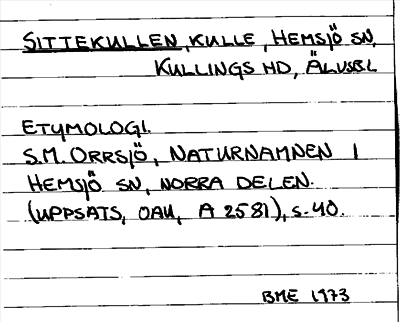 SITTEKULLEN, KULLE, HEMSJÖ SN,
KULLINGS HD, ÄLVSB.L
ETYMOLOGI.
S.M. ORRSJÖ, NATURNAMNEN I
HEMSJÖ SN, NORRA DELEN.
(UPPSATS, OAU, A 2581), s. 40.
BME 1973